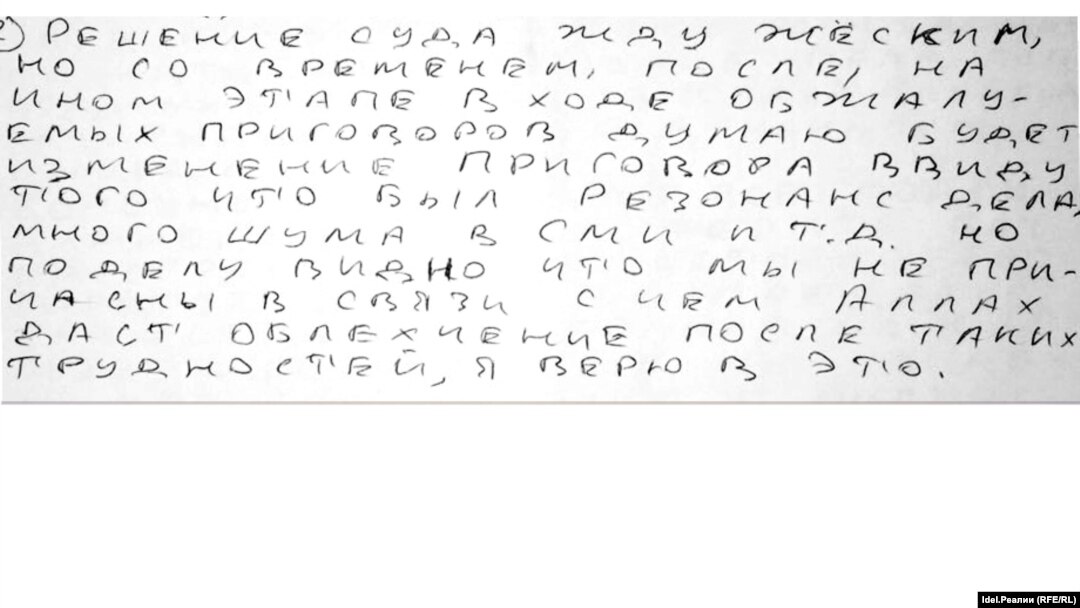 2) РЕШЕНИЕ СУДА ЖДУ ЖЁСКИМ,
НО СО ВРЕМЕНЕМ, ПОСЛЕ, НА
ИНОМ ЭТАПЕ В ХОДЕ ОБЖАЛУ-
ЕМЫХ ПРИГОВОРОВ ДУМАЮ БУДЕТ
ИЗМЕНЕНИЕ ПРИГОВОРА ВВИДУ
ТОГО ЧТО БЫЛ РЕЗОНАНС ДЕЛА,
МНОГО ШУМА В СМИ И Т.Д. НО
ПО ДЕЛУ ВИДНО ЧТО МЫ НЕ ПРИ-
ЧАСНЫ В СВЯЗИ С ЧЕМ АЛЛАХ
ДАСТ ОБЛЕХЧЕНИЕ ПОСЛЕ ТАКИХ
ТРУДНОСТЕЙ, Я ВЕРЮ В ЭТО.
Idel.Реалии (RFE/RL)